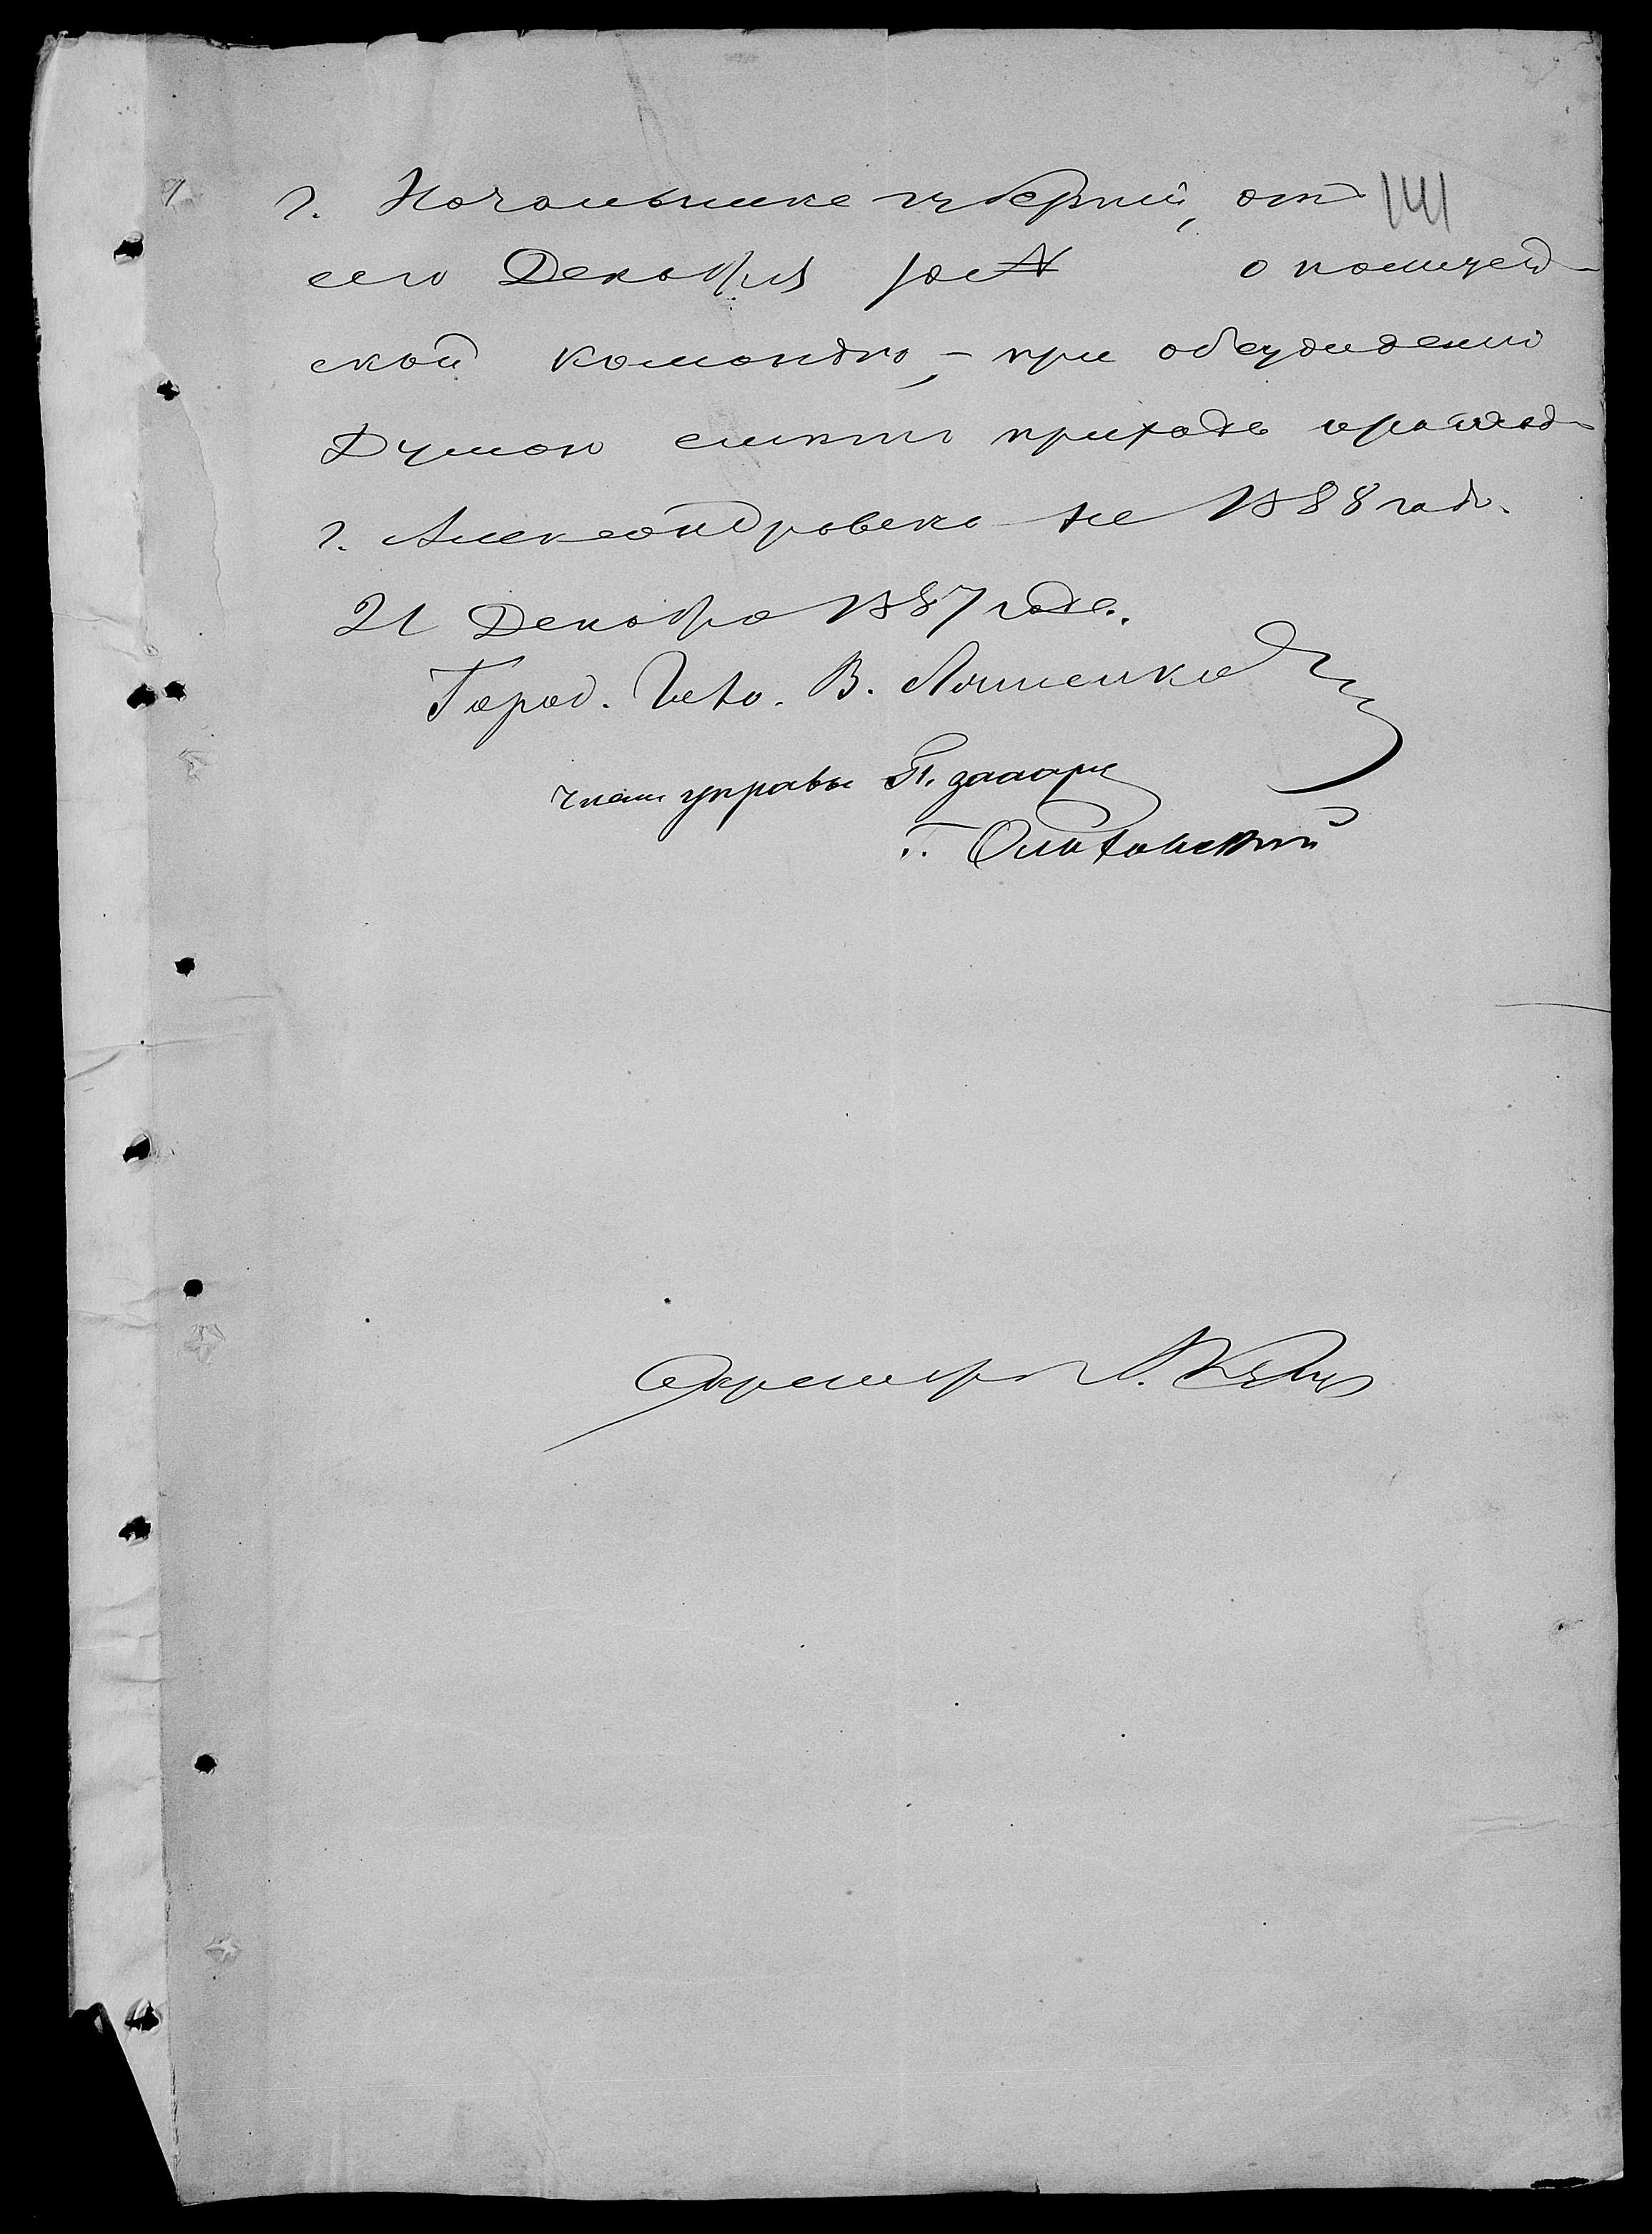 г. Начальника губерніи, отъ 141
сего Декабря за № о полицей-
ской командѣ, – при обсужденіи
Думою смѣты прихода и расход.
г. Александровска на 1888 годъ.
21 Декабря 1887 года.
Город. Голо. В. Ляшенко
член управы П.
Г.
Секретарь